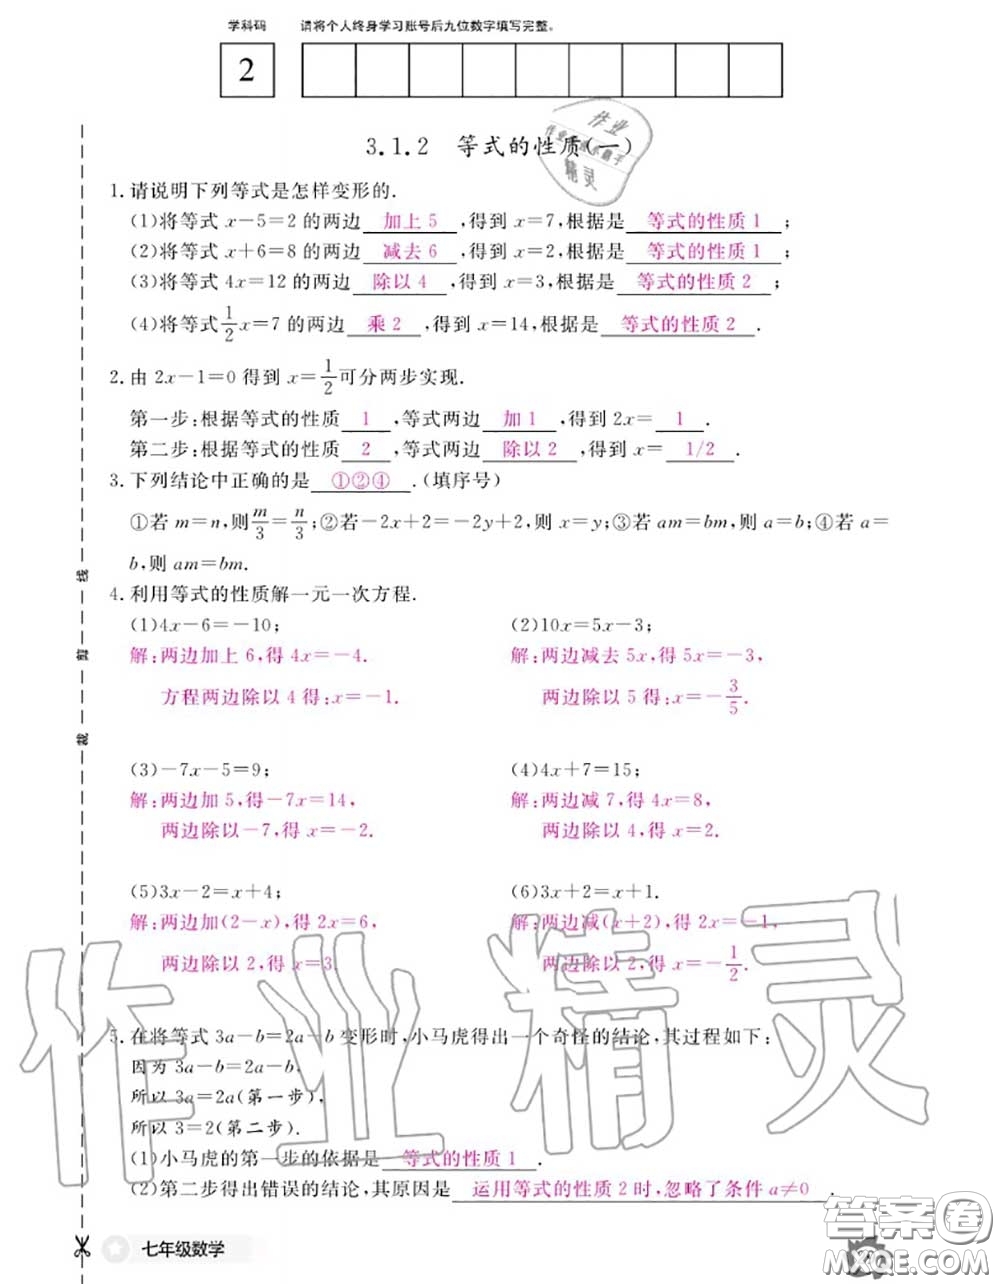 学科码 请将个人终身学习账号后九位数字填写完整。
2
3.1.2 等式的性质(一)
作业
精灵
1.请说明下列等式是怎样变形的.
(1)将等式 x-5=2 的两边 加上 5 ,得到 x=7,根据是 等式的性质 1 ;
(2)将等式 x+6=8 的两边 减去 6 ,得到 x=2,根据是 等式的性质 1 ;
(3)将等式 4x=12 的两边 除以 4 ,得到 x=3,根据是 等式的性质 2 ;
(4)将等式 1/2 x=7 的两边 乘 2 ,得到 x=14,根据是 等式的性质 2 .
2.由 2x-1=0 得到 x=1/2 可分两步实现.
第一步:根据等式的性质 1 ,等式两边 加 1 ,得到 2x= 1 .
第二步:根据等式的性质 2 ,等式两边 除以 2 ,得到 x= 1/2 .
3.下列结论中正确的是 ①②④ .(填序号)
①若 m=n,则 m/3=n/3;②若-2x+2=-2y+2,则 x=y;③若 am=bm,则 a=b;④若 a=
b,则 am=bm.
4.利用等式的性质解一元一次方程.
(1)4x-6=-10; (2)10x=5x-3;
解:两边加上 6,得 4x=-4. 解:两边减去 5x,得 5x=-3,
方程两边除以 4 得:x=-1. 两边除以 5 得:x=-3/5.
(3)-7x-5=9; (4)4x+7=15;
解:两边加 5,得-7x=14, 解:两边减 7,得 4x=8,
两边除以-7,得 x=-2. 两边除以 4,得 x=2.
(5)3x-2=x+4; (6)3x+2=x+1.
解:两边加(2-x),得 2x=6, 解:两边减(x+2),得 2x=-1,
两边除以 2,得 x=3. 两边除以 2,得 x=-1/2.
作业精灵
5.在将等式 3a-b=2a-b 变形时,小马虎得出一个奇怪的结论,其过程如下:
因为 3a-b=2a-b,
所以 3a=2a(第一步),
所以 3=2(第二步).
(1)小马虎的第一步的依据是 等式的性质 1 .
(2)第二步得出错误的结论,其原因是 运用等式的性质 2 时,忽略了条件 a≠0 .
裁 剪 线
七年级数学
答案卷